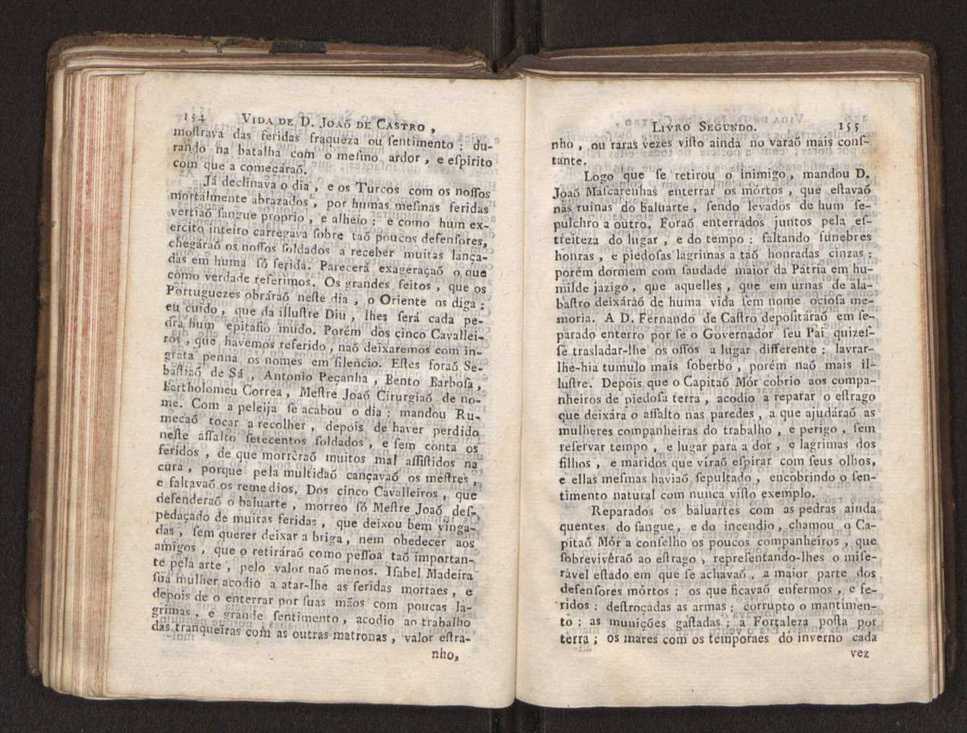 154 VIDA DE D. JOAÕ DE CASTRO ,
moſtrava das feridas fraqueza ou ſentimento ; du-
rando na batalha com o meſmo ardor , e eſpirito
com que a começaraõ.
Já declinava o dia , e os Turcos com os noſſos
mortalmente abrazados , por humas meſmas feridas
vertiaõ ſangue proprio , e alheio ; e como hum ex-
ercito inteiro carregava ſobre taõ poucos defenſores,
chegáraõ os noſſos ſoldados a receber muitas lança-
das em huma ſó ferida. Parecerá exageraçaõ o que
como verdade referimos. Os grandes feitos , que os
Portuguezes obráraõ neſte dia , o Oriente os diga ;
eu cuido , que da illuſtre Diu , lhes ſerá cada pe-
dra hum epitafio mudo. Porém dos cinco Cavallei-
ros , que havemos referido , naõ deixaremos com in-
grata penna os nomes em ſilencio. Eſtes foraõ Se-
baſtiaõ de Sá , Antonio Peçanha , Bento Barboſa ,
Bartholomeu Correa , Meſtre Joaõ Cirurgiaõ de no-
me. Com a peleija ſe acabou o dia ; mandou Ru-
mecaõ tocar a recolher , depois de haver perdido
neſte aſſalto ſetecentos ſoldados , e ſem conta os
feridos , de que morrèraõ muitos mal aſſiſtidos na
cura , porque pela multidaõ cançavaõ os meſtres ,
e faltavaõ os remedios. Dos cinco Cavalleiros , que
defenderaõ o baluarte , morreo ſó Meſtre Joaõ deſ-
pedaçado de muitas feridas , que deixou bem vinga-
das , ſem querer deixar a briga , nem obedecer aos
amigos , que o retiráraõ como peſſoa taõ importan-
te pela arte , pelo valor naõ menos. Iſabel Madeira
ſua mulher acodio a atar-lhe as feridas mortaes , e
depois de o enterrar por ſuas mãos com poucas la-
grimas , e grande ſentimento , acodio ao trabalho
das tranqueiras com as outras matronas , valor eſtra-
nho,
LIVRO SEGUNDO. 155
nho , ou raras vezes viſto ainda no varaõ mais conſ-
tante.
Logo que ſe retirou o inimigo , mandou D.
Joaõ Maſcarenhas enterrar os mórtos , que eſtavaõ
nas ruinas do baluarte , ſendo levados de hum ſe-
pulchro a outro. Foraõ enterrados juntos pela eſ-
treiteza do lugar , e do tempo ; faltando funebres
honras , e piedoſas lagrimas a taõ honradas cinzas ;
porém dormem com ſaudade maior da Pátria em hu-
milde jazigo , que aquelles , que em urnas de ala-
baſtro deixáraõ de huma vida ſem nome ocioſa me-
moria. A D. Fernando de Caſtro depoſitáraõ em ſe-
parado enterro por ſe o Governador ſeu Pai quizeſ-
ſe trasladar-lhe os oſſos a lugar differente ; lavrar-
lhe-hia tumulo mais ſoberbo , porém naõ mais il-
luſtre. Depois que o Capitaõ Mór cobrio aos compa-
nheiros de piedoſa terra , acodio a reparar o eſtrago
que deixára o aſſalto nas paredes , a que ajudáraõ as
mulheres companheiras do trabalho , e perigo , ſem
reſervar tempo , e lugar para a dor , e lagrimas dos
filhos , e maridos que viraõ eſpirar com ſeus olhos,
e ellas meſmas haviaõ ſepultado , encobrindo o ſen-
timento natural com nunca viſto exemplo.
Reparados os baluartes com as pedras ainda
quentes do ſangue , e do incendio , chamou o Ca-
pitaõ Mór a conſelho os poucos companheiros , que
ſobrevivêraõ ao eſtrago , repreſentando-lhes o miſe-
ravel eſtado em que ſe achavaõ , a maior parte dos
defenſores mórtos ; os que ficavaõ enfermos , e fe-
ridos ; deſtroçadas as armas ; corrupto o mantimen-
to ; as munições gaſtadas ; a Fortaleza poſta por
terra ; os mares com os temporaes do inverno cada
vez